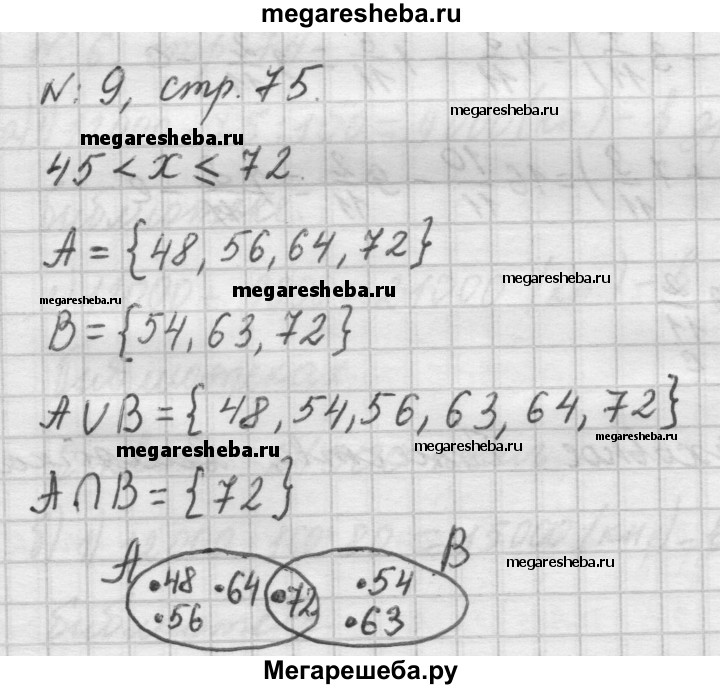 megaresheba.ru
№ 9, стр. 75.
megaresheba.ru
megaresheba.ru
45 < x ≤ 72.
A = {48, 56, 64, 72}
megaresheba.ru
megaresheba.ru
megaresheba.ru
B = {54, 63, 72}
A ∪ B = {48, 54, 56, 63, 64, 72}
megaresheba.ru
megaresheba.ru
megaresheba.ru
A ∩ B = {72}
A
B
megaresheba.ru
48
64
72
54
56
63
Мегарешеба.ру